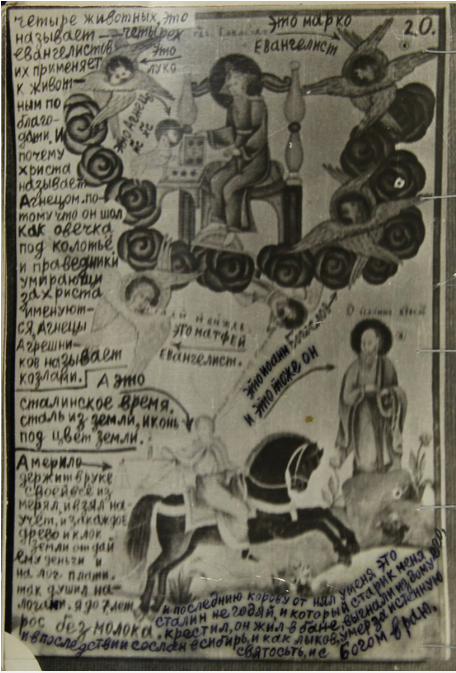 четыре животных, это
называет четырех
евангелистов
их применяет
к живот-
ным по
благо-
дати. И
почему
христа
называет
Агнецом. по-
тому что он шол
как овечка
под колотье
и праведники
умирающи
за христа
именуют-
ся, Агнецы
А грешни-
ков называет
козлами.
это
луко
это Агнец
это марко
евангелист
20.
это матфей
евангелист.
это иоанн Богослов
и это тоже он
А это
сталинское время.
сталь из земли, и конь
под цвет земли.
А мерило
держит в руке
своей все из
мерял, и взял на
учет, и за каждое
древо и клок
земли отдай
ему деньги и
на лог плати.
так душил на-
логами. я до 7 лет
рос без молока.
и последнию корову от нял у меня это
сталин негодяй, и который старик меня
крестил, он жил в бане, выгнали из дому
и в последствии сослан в сибирь, и как лыков, умер за истенную
святость, и с Богом в раю.